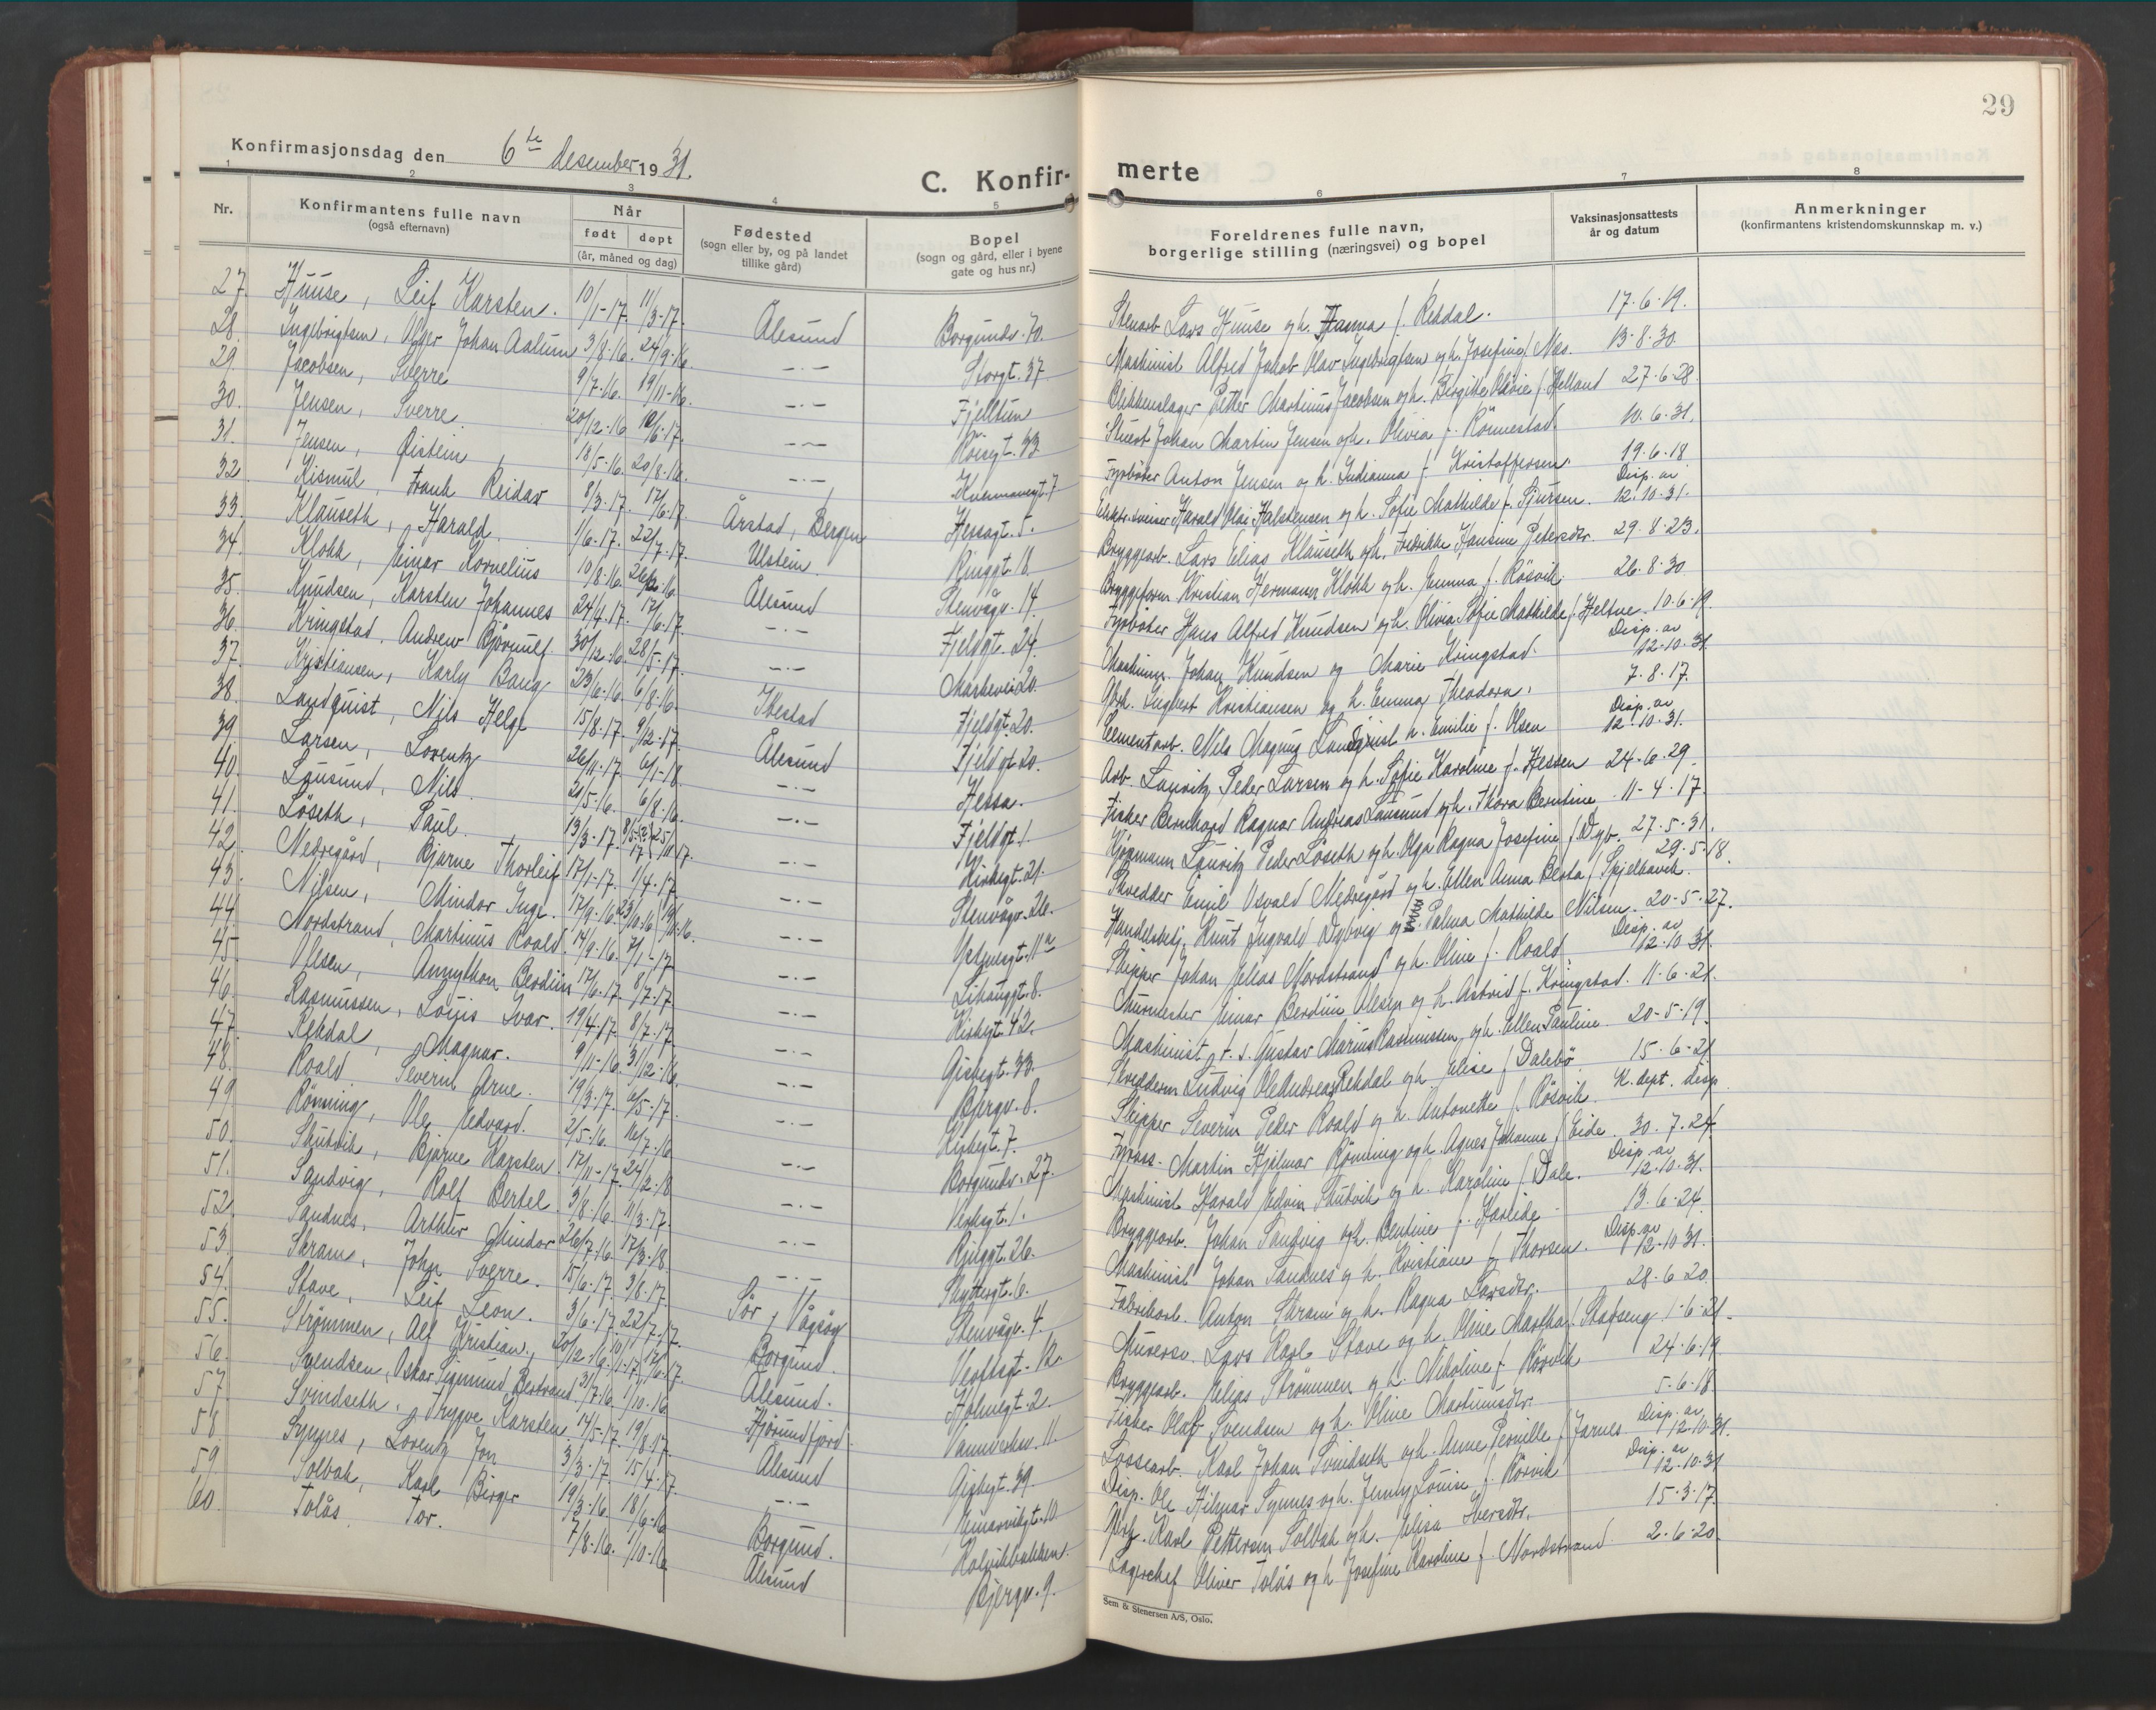 29
Konfirmasjonsdag den 6te Desember 1931.
C. Konfir-
merte
1 2 3 4 5 6 7 8
Nr.
Konfirmantens fulle navn
(også efternavn)
Når
født døpt
(år, måned og dag)
Fødested
(sogn eller by, og på landet
tillike gård)
Bopel
(sogn og gård, eller i byene
gate og hus nr.)
Foreldrenes fulle navn,
borgerlige stilling (næringsvei) og bopel
Vaksinasjonsattests
år og datum
Anmerkninger
(konfirmantens kristendomskunnskap m. v.)
27. Huuse, Leif Karsten. 10/1-17. 11/3-17. Ålesund Borgundv. 70. Stenarb. Lars Huuse og h. Hanna f. Rekdal. 17.6.19.
28. Ingebrigtsen, Olger Johan Aalum 3/8.16. 24/9.16. -.- Storgt. 37. Maskinist Alfred Jakob Olav Ingebrigtsen og h. Josefine f. Nes. 13.8.30.
29. Jacobsen, Sverre 9/7-16. 19/11-16. -.- Fjelltun Blikkenslager Petter Martinus Jacobsen og h. Birgitte Olivie f. Helland 27.6.28.
30. Jensen, Sverre. 20/12.16 10/6.17. -.- Röisgt. 33 Stuert Johan Martin Jensen og h. Olivia f. Rönnestad. 10.6.31.
31. Jensen, Øistein 18/5-16. 20/8.16. -.- gt. 7 Fyrböter Anton Jensen og h. Indianna f. Kristoffersen. 19.6.18
32. Kismul, Frank Reidar 8/3.17. 17/6.17. Årstad, Bergen Hessagt. 5. Elektr. sveiser Harald Olai Halstensen og h. Sofie Mathilde f. Sjursen. Disp. av 12.10.31.
33. Klauseth, Harald. 1/6-17. 22/7.17. Ulstein. Ringgt. 16. Bryggearb. Lars Elias Klauseth og h. Fredrikke Hansine Petersdtr. 29.8.23.
34. Klokk, Einar Kornelius 10/8.16. Ålesund Stenvågv. 14. Bryggeform. Kristian Hermann Klokk og h. Emma f. Rösvik. 26.8.30
35. Knudsen, Karsten Johannes 24/4.17. 17/6.17. -.- Fjeldgt. 24. Fyrböter Hans Alfred Knudsen og h. Olivia Sofie Mathilde f. Heltne. 10.6.19.
36. Kringstad, Andrew Bjørnulf 30/12.16. 28/5-17. -.- 20. Maskinm. Johan Knudsen og Marie Kringstad. Disp. av 12.10.31.
37. Kristiansen, Karly Bang 23/6.16. 6/8.16. Ibestad Fjeldgt. 20. Agt. Ingbert Kristiansen og h. Emma Theodora. 7.8.17.
38. Landquist, Nils Helge 15/8.17. 9/12-17. Ålesund Fjeldgt 20. Cementarb. Nils Magnus Landquist h. Emilie f. Olsen Disp. av 12.10.31.
39. Larsen, Lorentz 26/11.17. 6/1-18. -.- Hessa. Arb. Lauritz Peder Larsen og h. Sofie Karoline f. Hessen 24.6.29.
40. Lausund, Nils. 21/5.16. 6/8.16. -.- Fjeldgt. 1. Fisker Bernhard Ragnar Andreas Lausund og h. Thora Berntine. 11-4.17.
41. Löseth, Paul. 13/3-17. -.- Kirkegt. 21. Lauritz Peder Löseth og h. Olga Ragna Josefine f. Dyb. 27.5.31.
42. Nedregård, Bjarne Thorleif 17/1-17. 1/4.17. -.- Stenvågv. 26. Skredder Emil Osvald Nedregård og h. Ellen Anna Berta f. Spjelkavik. 29.5.18.
43. Nilsen, Mindor Inge. 17/9-16. -.- gt. 11a Handelsbetj. Knut Ingvald Dybvig og Palma Mathilde Nilsen. 20-5.27.
44. Nordstrand, Martinus Roald. 14/9.16. 7/1-17 -.- Lihauggt. 8. Skipper Johan Elias Nordstrand og h. Oline f. Roald. Disp. av 12.10.31.
45. Olsen, Amython Berdiin 17/6.17. 8/7.17. -.- Kirkegt. 42. Murmester Einar Berdiin Olsen og h. Astrid f. Kringstad. 11.6.21.
46. Rasmussen, Louis Ivar. 19/4.17. 8/7.17. -.- Giskegt. 33. Maskinist Gustav Marius Rasmussen og h. Ellen Pauline. 20-5-19.
47. Rekdal, Magnar. 9/11-16. 31/12.16. -.- Bjergv. 8. Skredderm. Ludvig Ole Andreas Rekdal og h. Elise f. Dalebö. 15.6-21.
48. Roald, Severin Arne. 19/3.17. 6/5.17. -.- Kirkegt. 7. Skipper Severin Peder Roald og h. Antonette f. Rösvik. K. dept. disp.
49. Rönning, Ole Edvard. 2/5.16. 16/7.16 -.- Borgundv. 27. Fyrass. Martin Hjelmar Rönning og h. Agnes Johanne f. Eide. 30.7.24.
50. Skutvik, Bjarne Karsten 17/11-17. 24/2.18 -.- Verksgt. 1. Maskinist Harald Edvin Skutvik og h. Karoline f. Dale. Disp. av 12.10.31.
51. Sandvig, Rolf Bertel. 3/8.16. 11/3.17. -.- Ringgt. 26. Bryggearb. Johan Sandvig og h. Bentine f. Hareide. 13.6.24.
52. Sandnes, Arthur Mindor 26/7.16 17/3.18. -.- Skyttergt. 6. Maskinist Johan Sandnes og h. Kristiane f. Thorsen. Disp. av 12.10.31.
53. Skram, John Sverre. 15/6.17. 3/8.17. Sör Vågsøy Stenvågv. 4. Fabrikarb. Anton Skram og h. Ragna Larsdtr. 28.6.20.
54. Stave, Leif Leon. 3/6.17. 22/7.17. Borgund. Verftsgt. 12. Murersv. Lars Karl Stave og h. Oline Martha f. Stafseng. 1-6-21.
55. Strömmen, Alf Kristian. 20/12-16. Ålesund. Holmegt. 2. Bryggearb. Elias Strömmen og h. Nikoline f. Rösvik 24.6.19.
56. Svendsen, Oskar Sigmund Bertrand 3/7.16. 1/10.16 Hjörundfjord Vannverksv. 11. Fisker Olaf Svendsen og h. Oline Martinusdtr. 5.6.18.
57 Svindseth, Trygve Karsten 14/5-17. 19/8.17. Ålesund Giskegt. 39. Lossearb. Karl Johan Svindseth og h. Anne Pernille f. Jarnes Disp. av 12.10.31.
58. Synnes, Lorentz Jon 3/3-17. 15/4.17. -.- Einarvikgt. 10. Disp. Ole Hilmar Synnes og h. Jenny Louise f. Rörvik Disp. av 12.10.31
59. Solbak, Karl Birger 19/3-16. 18/6-16 Borgund. Kolvikbakken. Karl Pettersen Solbak og h. Elisa Iversdtr. 15.3.17.
60. Tolås, Tor. 7/8.16. 1/10.16 Ålesund Bjergv. 9. Lagerchef Oliver Tolås og h. Josefine Karoline f. Nordstrand. 2.6.20.
Sem & Stenersen A/S, Oslo.